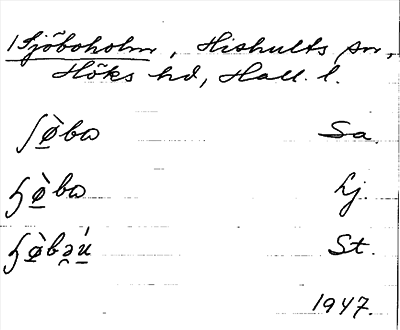 1 Sjöboholm, Hishults sn,
Höks hd, Hall. l.
ʃø̠̀ba Sa.
ɧø̠̀ba Lj.
ɧø̠̀bə̯ú̠ St.
1947.